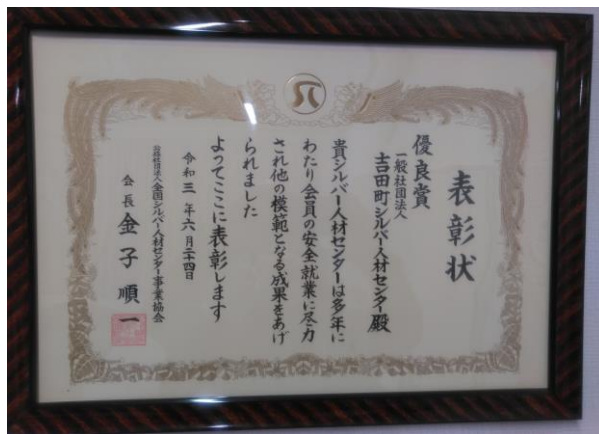 表彰状
優良賞
一般社団法人
吉田町シルバー人材センター殿
貴シルバー人材センターは多年に
わたり会員の安全就業に尽力
され他の模範となる成果をあげ
られました
よってここに表彰します
令和三年六月二十四日
公益社団法人全国シルバー人材センター事業協会
会長 金子順一